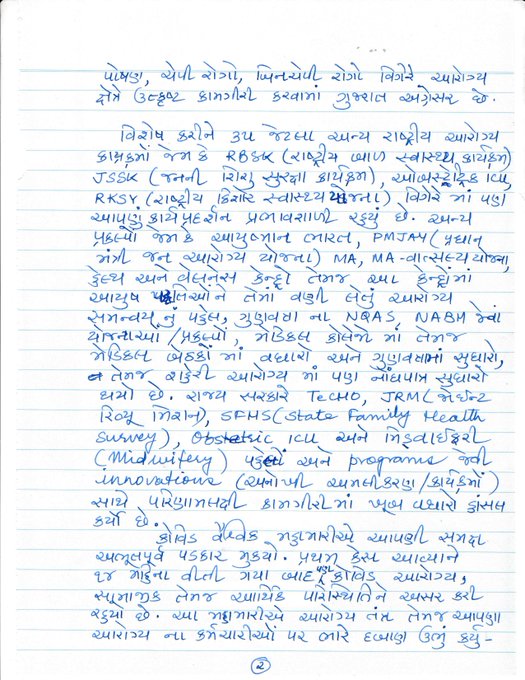 પોષણ, ચેપી રોગો, બિનચેપી રોગો વિગેરે આરોગ્ય
ક્ષેત્રે ઉત્કૃષ્ટ કામગીરી કરવામાં ગુજરાત અગ્રેસર છે.
વિશેષ કરીને ૩૫ જેટલા અન્ય રાષ્ટ્રીય આરોગ્ય
કાર્યક્રમો જેમ કે RBSK (રાષ્ટ્રીય બાળ સ્વાસ્થ્ય કાર્યક્રમ)
JSSK (જનની શિશુ સુરક્ષા કાર્યક્રમ), ઓબસ્ટ્રેટ્રિક ICU,
RKSY (રાષ્ટ્રીય કિશોર સ્વાસ્થ્ય યોજના) વિગેરે માં પણ
આપણું કાર્યપ્રદર્શન પ્રભાવશાળી રહ્યું છે. અન્ય
પ્રકલ્પો જેમ કે આયુષ્માન ભારત, PMJAY (પ્રધાન
મંત્રી જન આરોગ્ય યોજના) MA, MA-વાત્સલ્ય યોજના,
હેલ્થ અને વેલનેસ કેન્દ્રો તેમજ આ કેન્દ્રોમાં
આયુષ પદ્ધતિઓને તેમાં વણી લેતું આરોગ્ય
સમન્વય નું પહેલ, ગુણવત્તા ના NQAS, NABH જેવા
યોજનાઓ / પ્રકલ્પો, મેડિકલ કોલેજો માં તેમજ
મેડિકલ બેઠકો માં વધારો અને ગુણવત્તામાં સુધારો,
તેમજ શહેરી આરોગ્ય માં પણ નોંધપાત્ર સુધારો
થયો છે. રાજ્ય સરકારે TeCHO, JRM (જોઈન્ટ
રિવ્યૂ મિશન), SFHS (State Family Health
Survey), Obstetric ICU અને મિડવાઈફરી
(Midwifery) પહેલો અને programs જેવી
innovations (અનોખી અમલીકરણ / કાર્યક્રમો)
સાથે પરિણામલક્ષી કામગીરીમાં ખૂબ વધારો હાંસલ
કર્યો છે.
કોવિડ વૈશ્વિક મહામારીએ આપણી સમક્ષ
અભૂતપૂર્વ પડકાર મુક્યો. પ્રથમ કેસ આવ્યાને
૧૪ મહિના વીતી ગયા બાદ પણ કોવિડ આરોગ્ય,
સામાજીક તેમજ આર્થિક પરિસ્થિતિને અસર કરી
રહ્યો છે. આ મહામારીએ આરોગ્ય તંત્ર તેમજ આપણા
આરોગ્ય ના કર્મચારીઓ પર ભારે દબાણ ઉભું કર્યુ -
૨